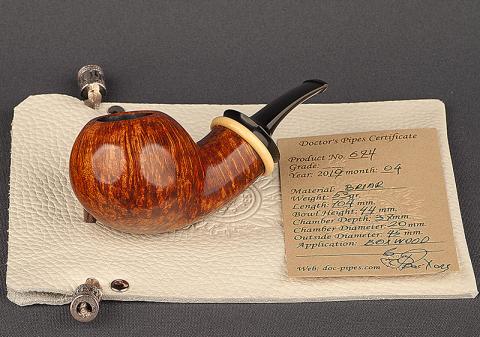 Doctor's Pipes Certificate
Product No. 694
Grade:
Year: 2019 month: 04
Material: BRIAR
Weight: gr.
Length: 104 mm.
Bowl Height: 44 mm.
Chamber Depth: 37 mm.
Chamber Diameter: 20 mm.
Outside Diameter: 46 mm.
Application: BOXWOOD
Web: doc-pipes.com